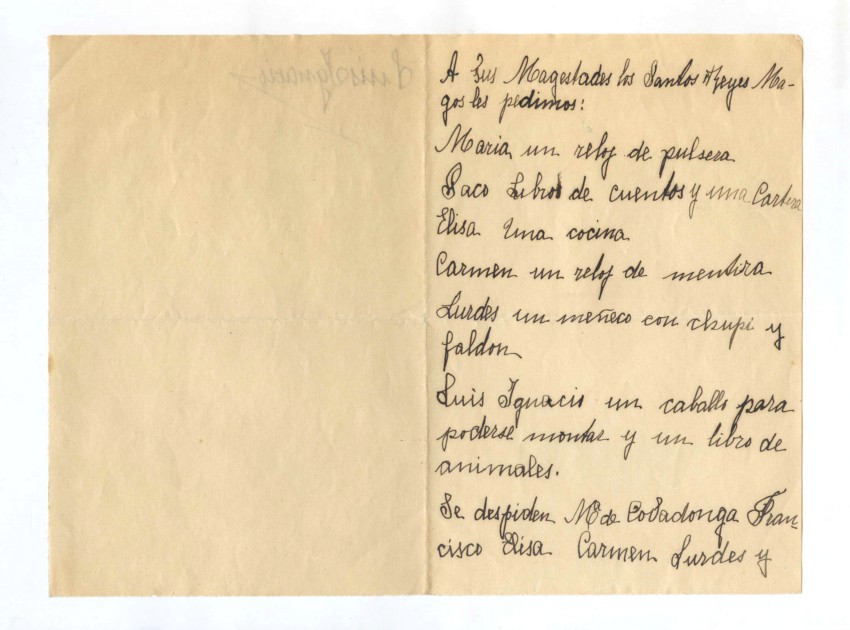 A Sus Magestades los Santos Reyes Ma-
gos les pedimos:
Maria un reloj de pulsera
Paco Libros de cuentos y una Cartera
Elisa Una cocina
Carmen un reloj de mentira
Lurdes un meñeco con chupe y
faldon
Luis Ignacio un caballo para
poderse montar y un libro de
animales.
Se despiden Mª de Covadonga Fran-
cisco Elisa Carmen Lurdes y
Luis Ignacio